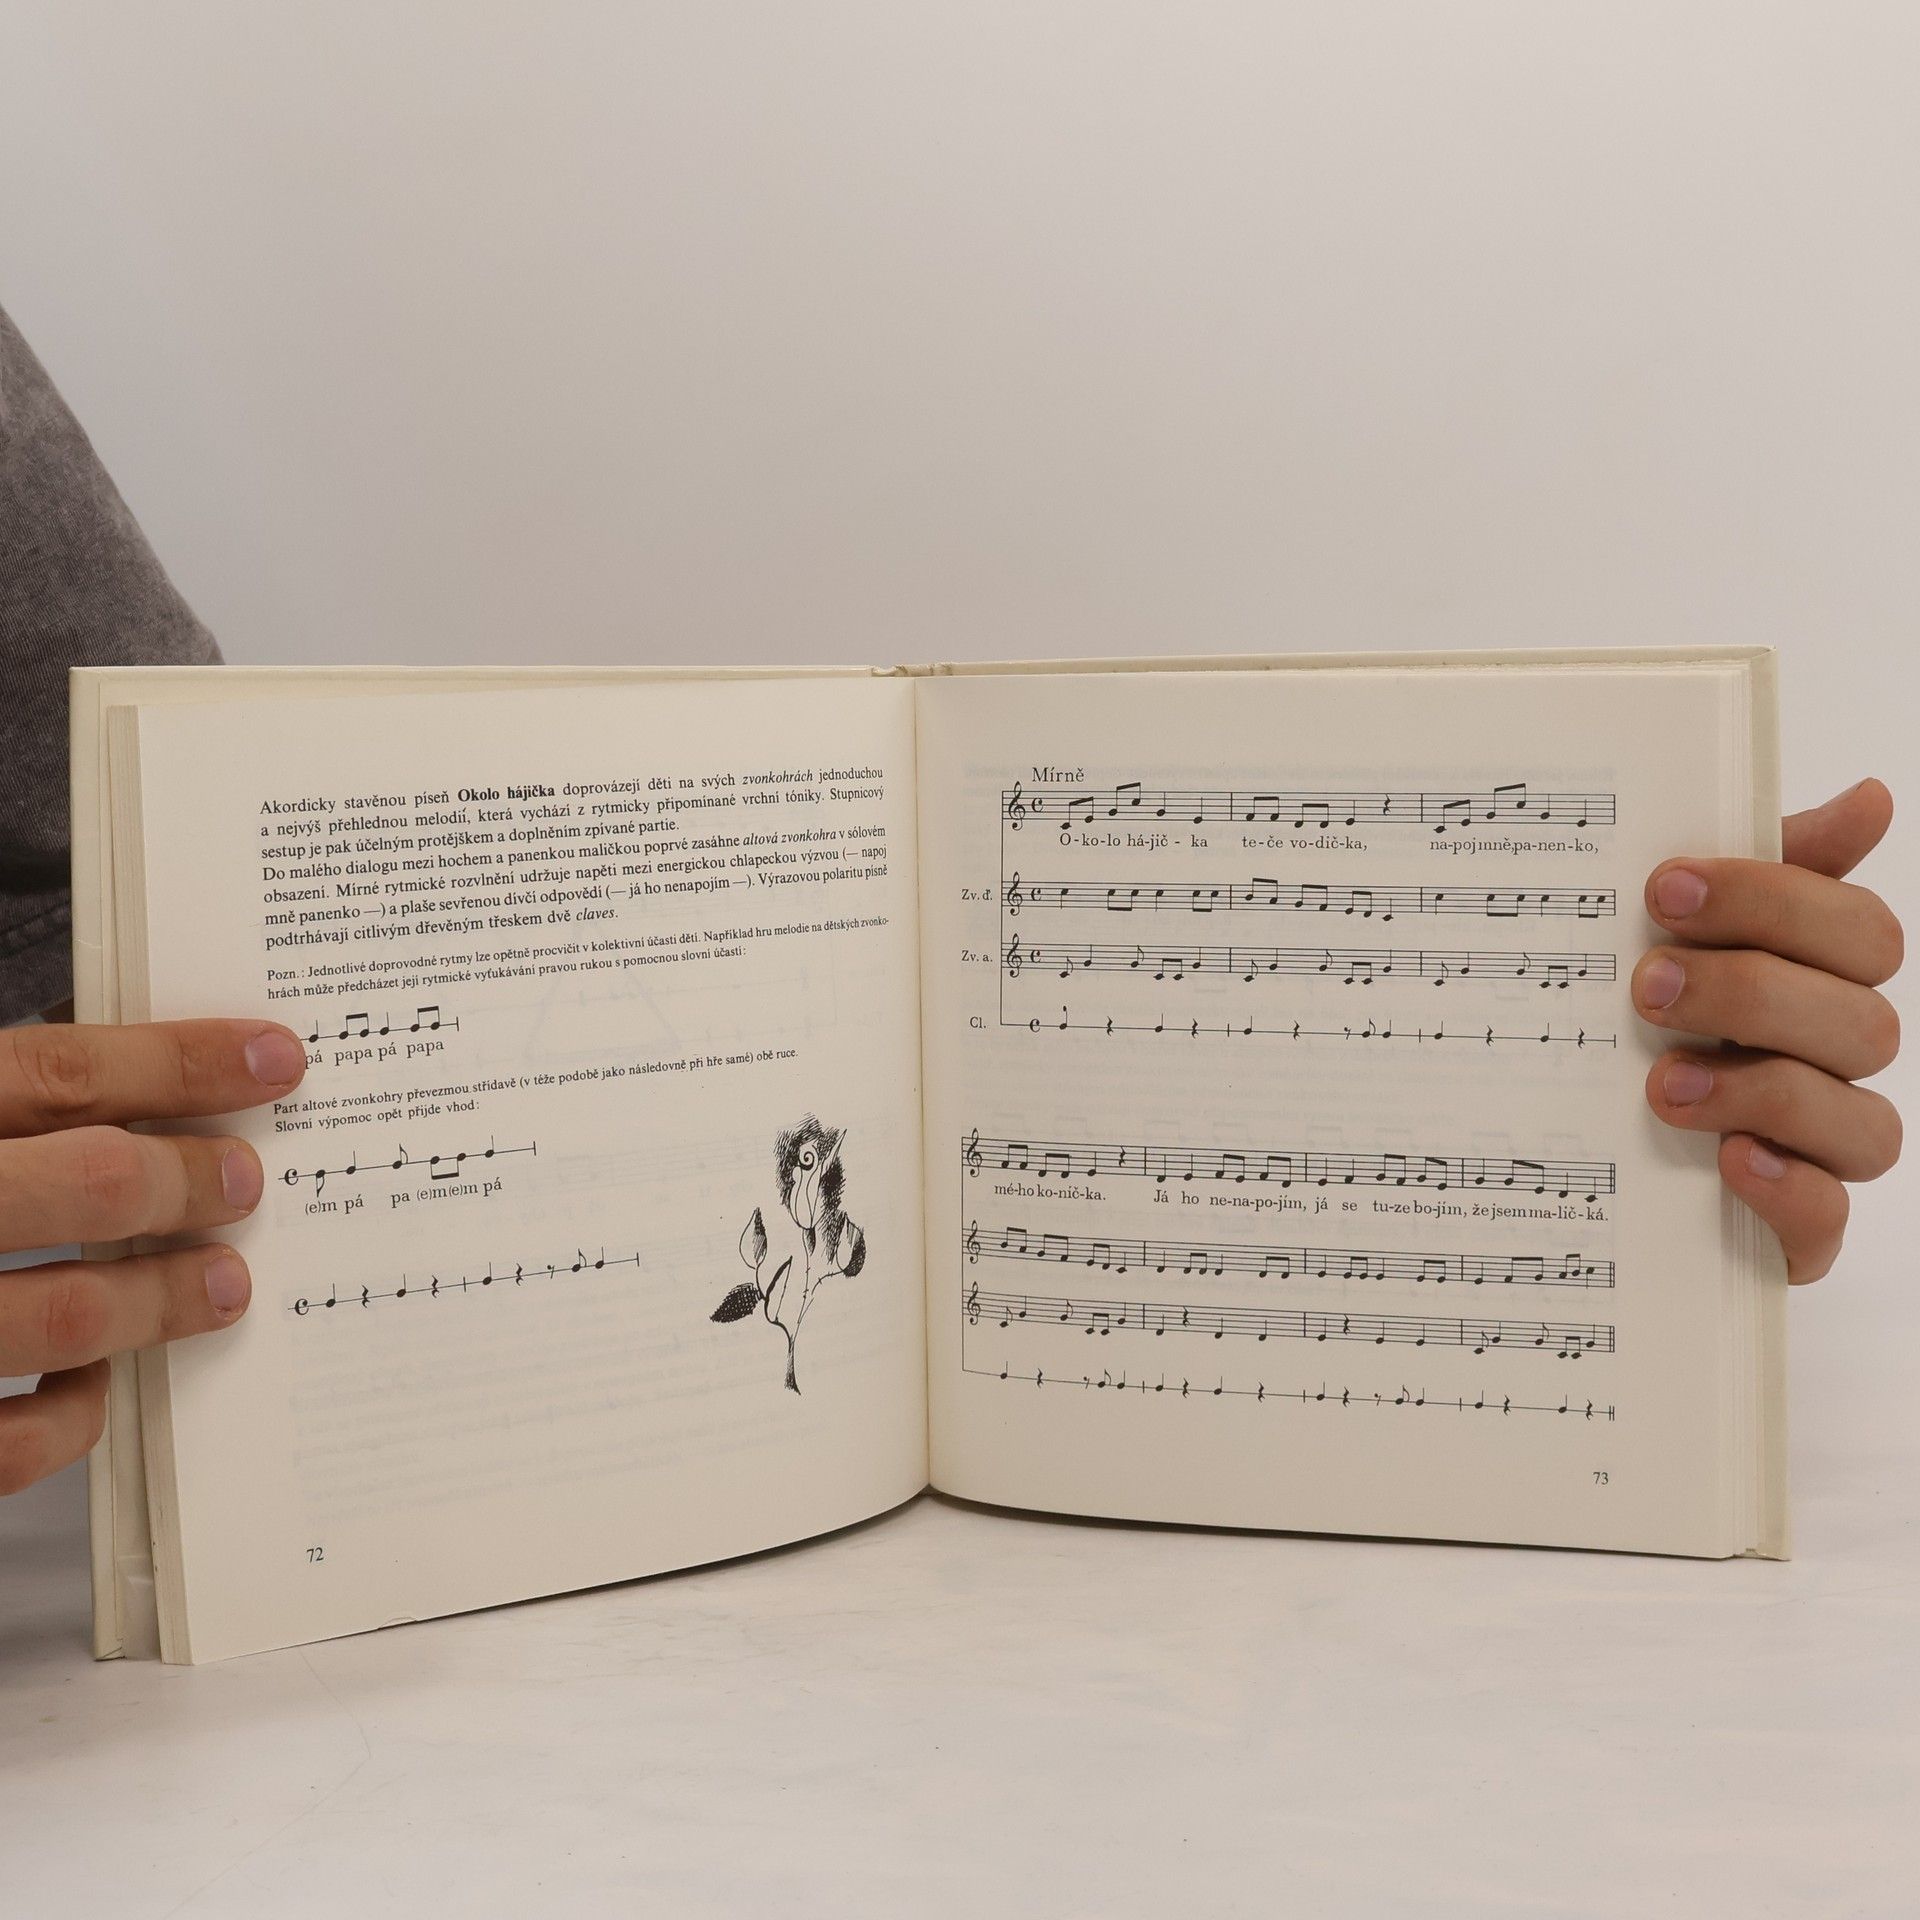 Akordicky stavěnou píseň Okolo hájíčka doprovázejí děti na svých zvonkohrách jednoduchou
a nejvýš přehlednou melodií, která vychází z rytmicky připomínané vrchní tóniky. Stupnicový
sestup je pak účelným protějškem a doplněním zpívané partie.
Do malého dialogu mezi hochem a panenkou maličkou poprvé zasáhne altová zvonkohra v sólovém
obsazení. Mírné rytmické rozvlnění udržuje napětí mezi energickou chlapeckou výzvou (— napoj
mně panenko —) a plaše sevřenou dívčí odpovědí (— já ho nenapojím —). Výrazovou polaritu písně
podtrhávají citlivým dřevěným třeskem dvě claves.
Pozn.: Jednotlivé doprovodné rytmy lze opětně procvičit v kolektivní účasti dětí. Například hru melodie na dětských zvonko-
hrách může předcházet její rytmické vyťukávání pravou rukou s pomocnou slovní účastí:
pá papa pá papa
Part altové zvonkohry převezmou střídavě (v téže podobě jako následovně při hře samé) obě ruce.
Slovní výpomoc opět přijde vhod:
(e)m pá pa (e)m(e)m pá
72
Mírně
O-ko-lo há-jíč - ka te-če vo-dič-ka, na-poj mně, pa-nen-ko,
Zv. d.
Zv. a.
Cl.
mé-ho ko-níč-ka. Já ho ne-na-po-jím, já se tu-ze bo-jím, že jsem ma-lič-ká.
73